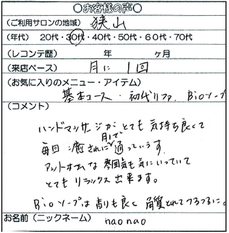 ●お客様の声●
(ご利用サロンの地域) 狭山
(年代) 20代・30代・40代・50代・60代・70代
(レコンテ歴) 年 ヶ月
(来店ペース) 月に1回
(お気に入りのメニュー・アイテム)
基本コース・初代リファ、Bioソープ
(コメント)
ハンドマッサージがとても気持ち良くて
毎回癒されに月1で通っています。
アットホームな雰囲気も気にいっていて
とてもリラックス出来ます。
Bioソープは香りも良く 角質とれてつるつるに。
お名前(ニックネーム) naonao